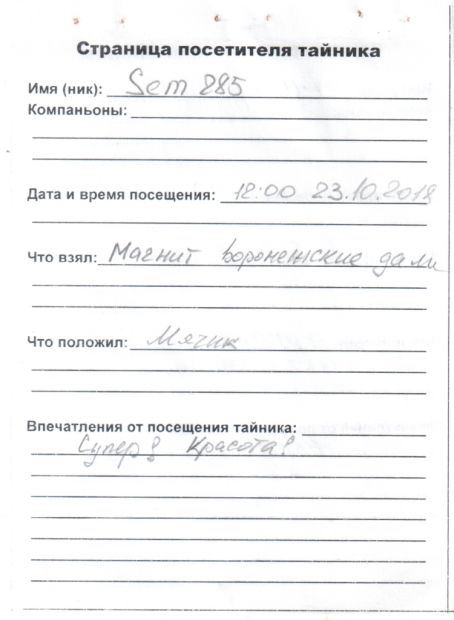 Страница посетителя тайника
Имя (ник): Sem 885
Компаньоны:
Дата и время посещения: 12:00 23.10.2018
Что взял: Магнит воронежские дали
Что положил: Мячик
Впечатления от посещения тайника:
Супер! Красота!